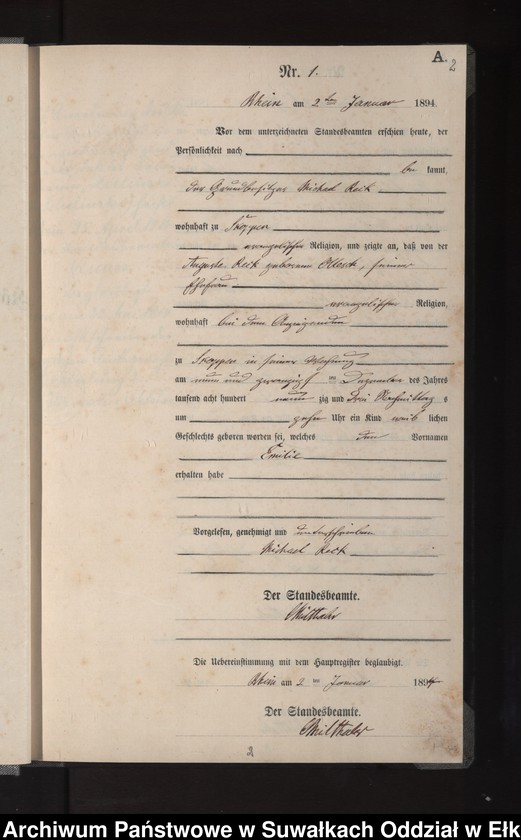 A.
2
Nr. 1.
Rhein am 2ten Januar 1894.
Vor dem unterzeichneten Standesbeamten erschien heute, der
Persönlichkeit nach
be kannt,
der Grundbesitzer Michael Reck
wohnhaft zu Skoppen
evangelischer Religion, und zeigte an, daß von der
Auguste Reck geborenen, seiner
Ehefrau
evangelischer Religion,
wohnhaft bei dem Anzeigenden
zu Skoppen in seiner Wohnung
am neun und zwanzigsten Dezember des Jahres
tausend acht hundert neun zig und drei Nachmittag s
um zehn Uhr ein Kind weib lichen
Geschlechts geboren worden sei, welches den Vornamen
Emilie
erhalten habe
Vorgelesen, genehmigt und unterschrieben
Michael Reck
Der Standesbeamte.
Milthaler
Die Uebereinstimmung mit dem Hauptregister beglaubigt.
Rhein am 2ten Januar 1894
Der Standesbeamte.
Milthaler
2
Archiwum Państwowe w Suwałkach Oddział w Ełku